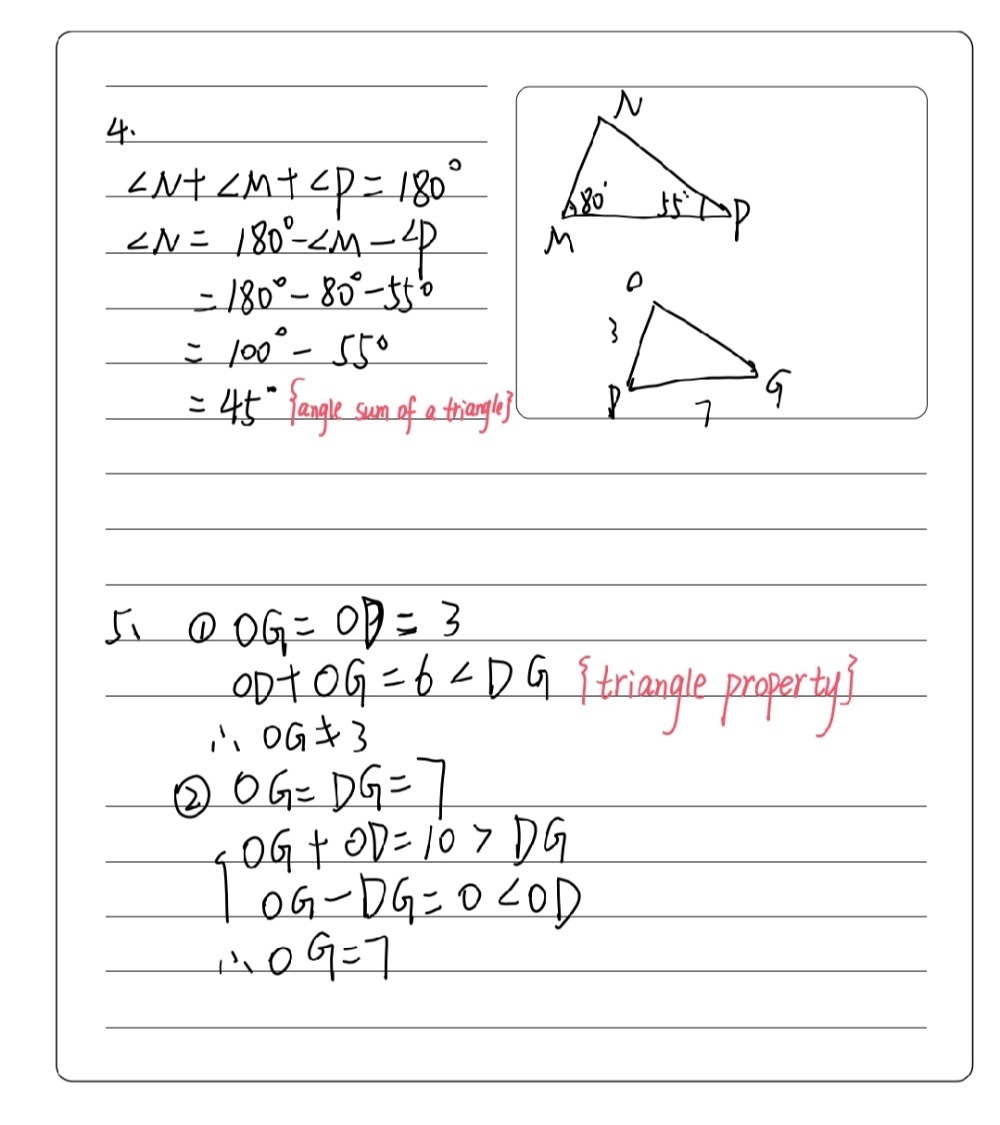 4.
∠N+∠M+∠P=180°
∠N=180°-∠M-∠P
=180°-80°-55°
=100°-55°
=45° {angle sum of a triangle}
N
80°
55°
P
M
O
3
P
G
7
5、 ① OG=OD=3
OD+OG=6<DG {triangle property}
∴ OG≠3
② OG=DG=7
{OG+OD=10>DG
OG-DG=0<OD
∴ OG=7